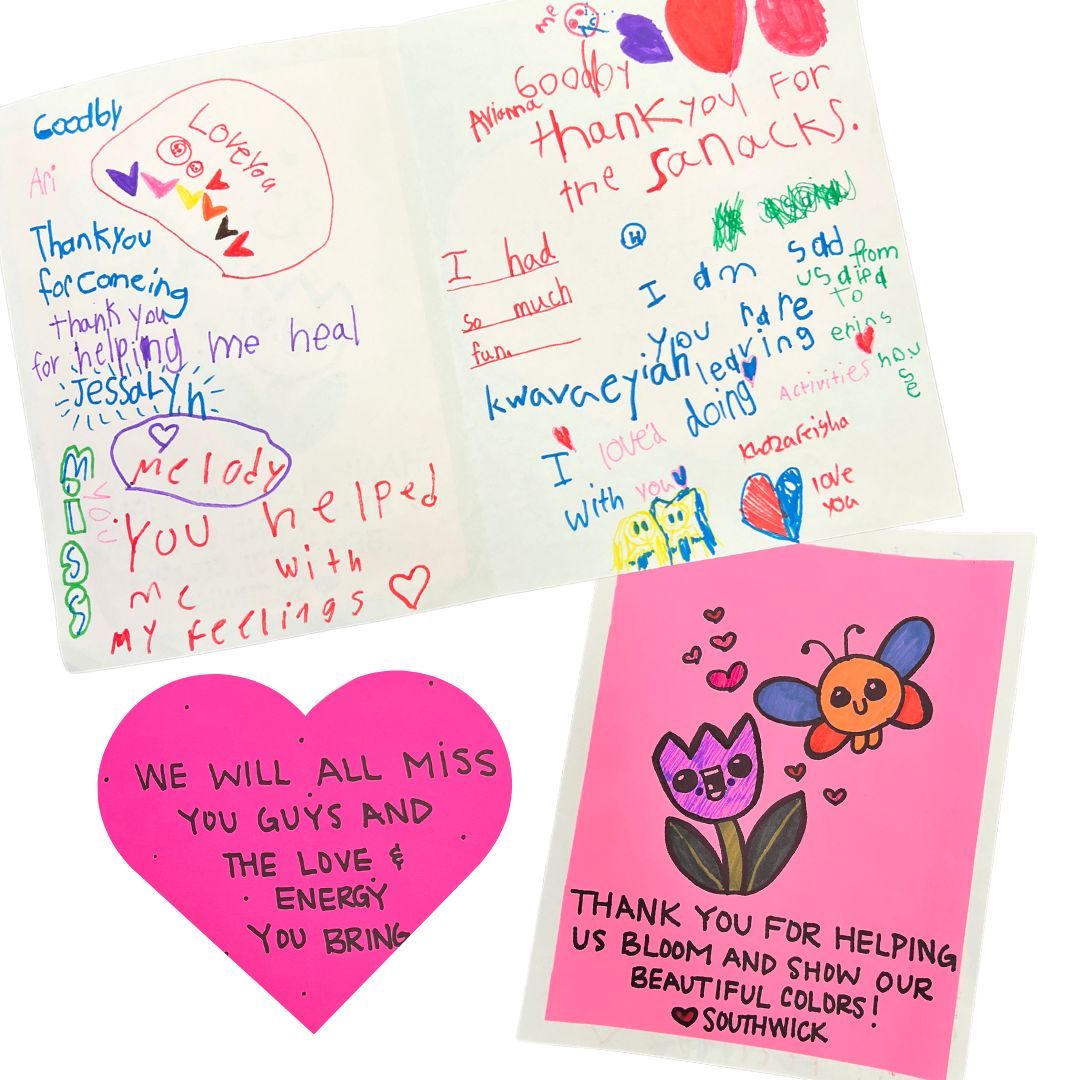 Goodby
Ari
Love You
Thankyou
for comeing
thank you
for helping me heal
Jessalyn
melody
Miss
You
You helped
me with
My Feelings
me
Goodby
Avianna
thank you For
the sanacks.
I had
so much
fun.
H
I am sad
you rare
leavring
kwavaeyiah
from
to
erins
house
I loved doing Activities
with you
love
you
WE WILL ALL MISS
YOU GUYS AND
THE LOVE &
ENERGY
YOU BRING
THANK YOU FOR HELPING
US BLOOM AND SHOW OUR
BEAUTIFUL COLORS!
SOUTHWICK